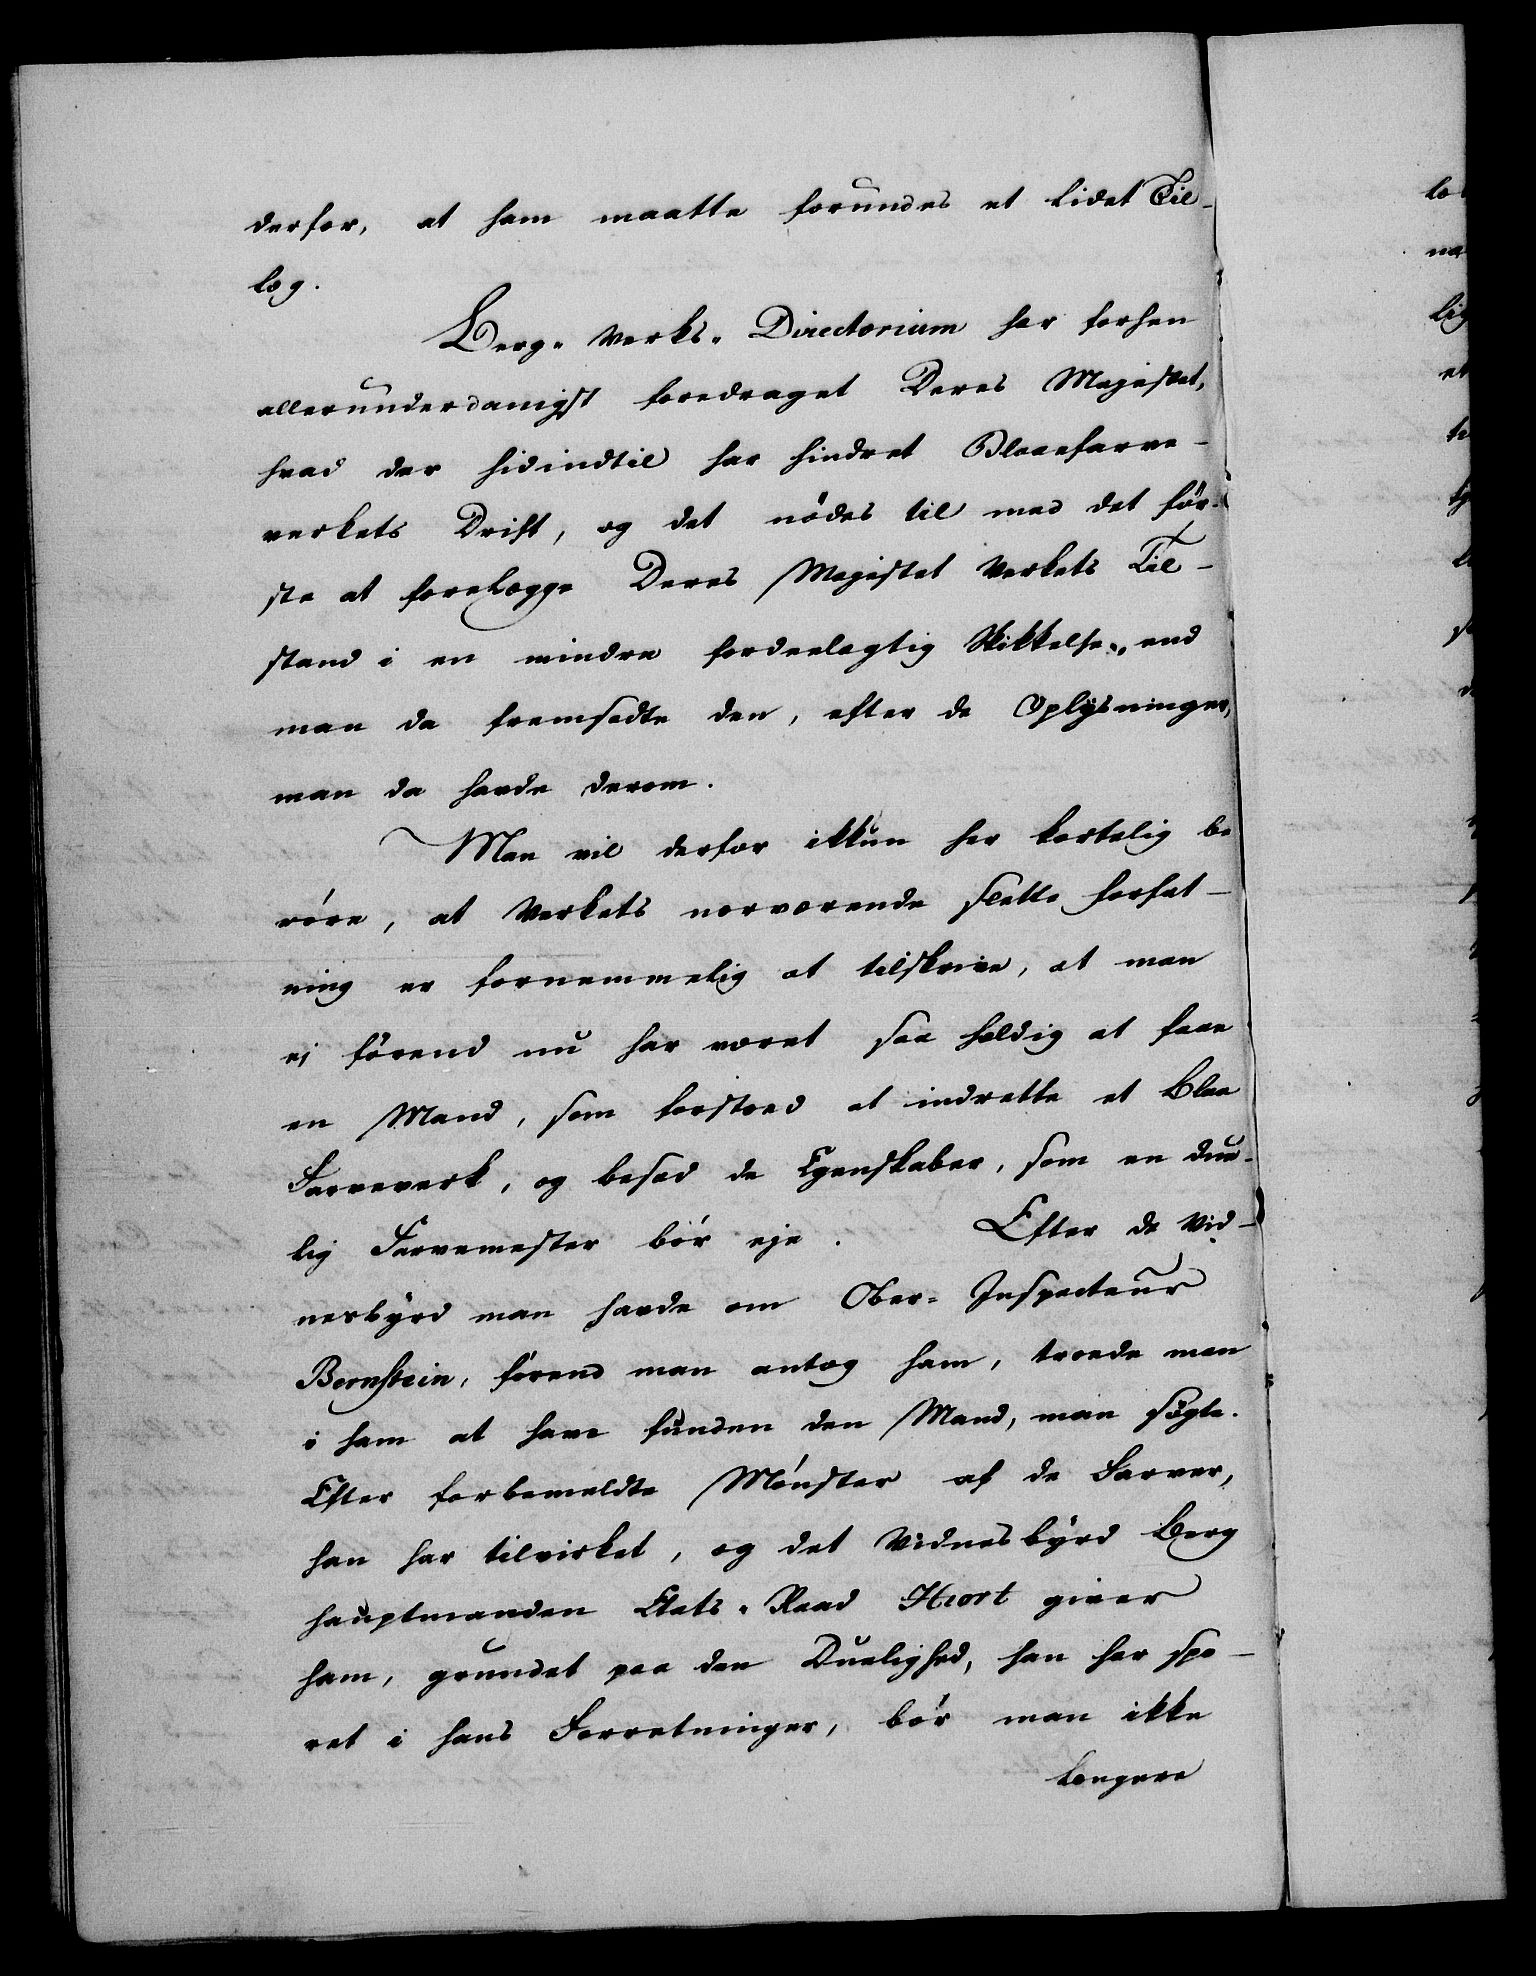 derfor, at ham maatte forundes et lidet Til-
læg.
Berg-Verks-Directorium har forhen
allerunderdanigst foredraget Deres Majestet,
hvad der hidindtil har hindret Blaaefarve-
verkets Drift, og det nödes til med det för-
ste at forelægge Deres Majestet Verkets Til-
stand i en mindre fordeelagtig Skikkelse, end
man da fremsadte den, efter de Oplysninger,
man da havde derom.
Man vil derfor ikkun her kortelig be
röre, at Verkets nærværende slette Forfat-
ning er fornemmelig at tilskrive, at man
ej förend nu har været saa heldig at faae
en Mand, som forstoed at indrette et Blaa
Farveverk, og besad de Egenskaber, som en due-
lig Farvemester bör eje. Efter de Vid-
nesbyrd man havde om Ober-Inspecteur
Bernstein, förend man antog ham, troede man
i ham at have funden den Mand, man sögte.
Efter forbemeldte Mönster af de Farver,
han har tilvirket, og det Vidnesbyrd Berg
hauptmanden Etats-Raad Hiort giver
ham, grundet paa den Duelighed, han har spo-
ret i hans Forretninger, bör man ikke
længere